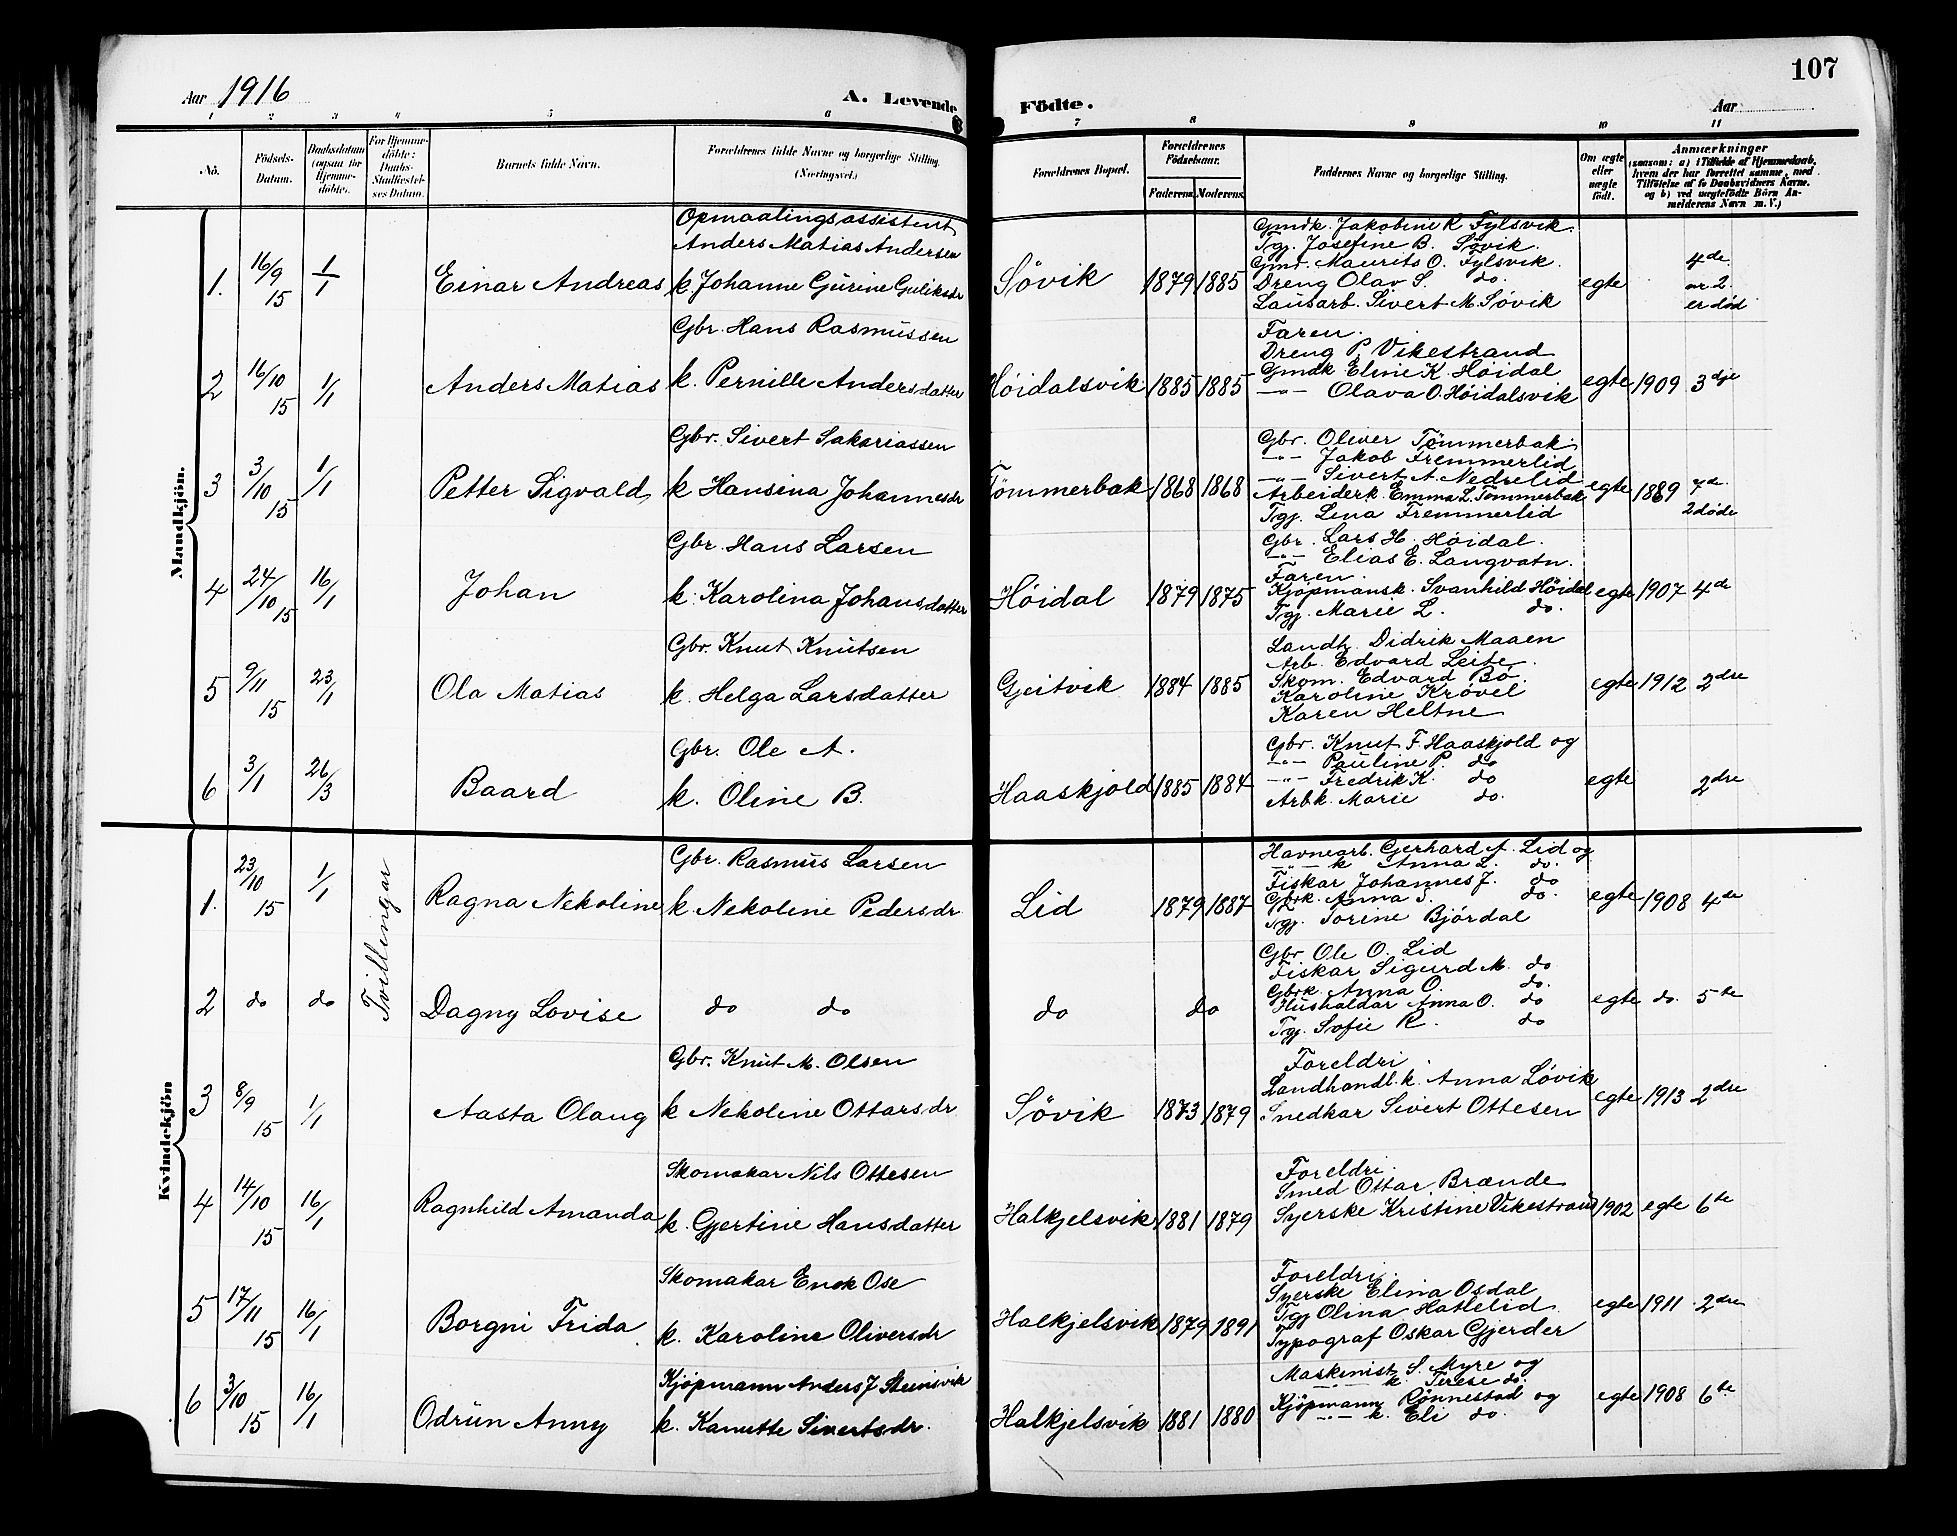 107
Aar 1916
A. Levende Födte.
Aar
1 2 3 4 5 6 7 8 9 10 11
No.
Födsels-Datum.
Daabsdatum (ogsaa for Hjemme-döbte).
For Hjemme-döbte: Daabs-Stadfæstelses Datum.
Barnets fulde Navn.
Forældrenes fulde Navne og borgerlige Stilling. (Næringsvei.)
Forældrenes Bopæl.
Forældrenes Födselsaar.
Faderens. Moderens.
Faddernes Navne og borgerlige Stilling.
Om ægte eller uægte födt.
Anmærkninger
(saasom: a) i Tilfælde af Hjemmedaab, hvem der har forrettet samme, med Tilföielse af to Daabsvidners Navne. og b) ved uægtefödte Börn Anmelderens Navn m. V.)
Mandkjön.
1. 16/9 15 1/1 Einar Andreas
Opmaalingsassistent
Anders Matias Andersen
k. Johanne Gurine Guliksdr
Søvik 1879 1885
Gmdk. Jakobine K Fylsvik.
Tgj. Josefine B. Søvik.
Gmd. Maurits O. Fylsvik.
Dreng Olav S. do.
Lausarb. Sivert M. Søvik
egte
4de.
nr. 2.
er død
2 16/10 15 1/1 Anders Matias
Gbr. Hans Rasmussen
k. Pernille Andersdatter
Høidalsvik 1885 1885
Faren.
Dreng P. Vikestrand
Gmdk Eline K. Høidal
-"- Olava O. Høidalsvik
egte 1909 3dje
3 3/10 15 1/1 Petter Sigvald
Gbr. Sivert Sakariassen
k Hansina Johannesdr
Tømmerbak 1868 1868
Gbr. Oliver Tømmerbak.
-"- Jakob Fremmerlid
-"- Sivert A. Nedrelid
Arbeiderk. Emma L. Tømmerbak
Tgj. Lina Fremmerlid
egte 1889
2 døde
4 24/10 15 16/1 Johan
Gbr. Hans Larsen
k. Karolina Johansdatter
Høidal 1879 1875
Gbr. Lars H. Høidal.
-"- Elias E. Langvatn.
Faren.
Kjøpmansk. Svanhild Høidal
Tgj. Marie L. do.
egte 1907 4de
5 9/11 15 23/1 Ola Matias
Gbr. Knut Knutsen
k. Helga Larsdatter
Geitvik 1884 1885
Landh. Didrik Maaen
Arb. Edvard Leite.
Skom. Edvard Bø.
Karoline Krøvel
Karen Heltne
egte 1912 2dre
6 3/1 26/3 Baard
Gbr. Ole A.
k. Oline B.
Haaskjold 1885 1884
Gbr. Knut F. Haaskjold og
-"- Pauline P. do
-"- Fredrik K. do
Arbk. Marie do.
egte 2dre
Kvindekjön
Tvillingar
1. 23/10 15 1/1 Ragna Nekoline
Gbr. Rasmus Larsen
k Nekoline Pedersdr
Lid 1879 1887
Havnearb. Gerhard A. Lid og
-"- k Anna L. do.
Fiskar Johannes J. do
Gbrk. Anna S. do.
Tgj. Torine Bjørdal
egte 1908 4de
2 do do Dagny Lovise
do do
do do
Gbr Ole O. Lid
Fiskar Sigurd M. do
Gbrk. Anna O. do.
Hushaldar Anna O. do
Tgj. Sofie R. do
egte do. 5te
3 8/9 15 1/1 Aasta Olaug
Gbr. Knut M. Olsen
k Nekoline Ottarsdr
Søvik 1873 1879
Foreldri.
Landhandl. k. Anna Løvik
Snedkar Sivert Ottesen
egte 1913 2dre
4 14/10 15 16/1 Ragnhild Amanda
Skomakar Nils Ottesen
k. Gjertine Hansdatter
Halkjelsvik 1881 1879
Foreldri.
Smed Ottar Brænde
Syerske Kristine Vikestrand
1902 egte 6te
5 17/11 15 16/1 Borgni Frida
Skomakar Enok Ose
k. Karoline Oliversdr
Halkjelsvik 1879 1891
Foreldri.
Syerske Elina Osdal
Tgj Olina Hatlelid
Typograf Oskar Gjerder
egte 1911 2dre
6 3/10 15 16/1 Odrun Anny
Kjøpmann Anders J Steinsvik
k. Kanutte Sivertsdr.
Halkjelsvik 1881 1880
Maskinist S. Myre og
-"- k. Terese do.
Kjøpmann Rønnestad og
-"- k. Eli do.
egte 1908 6te